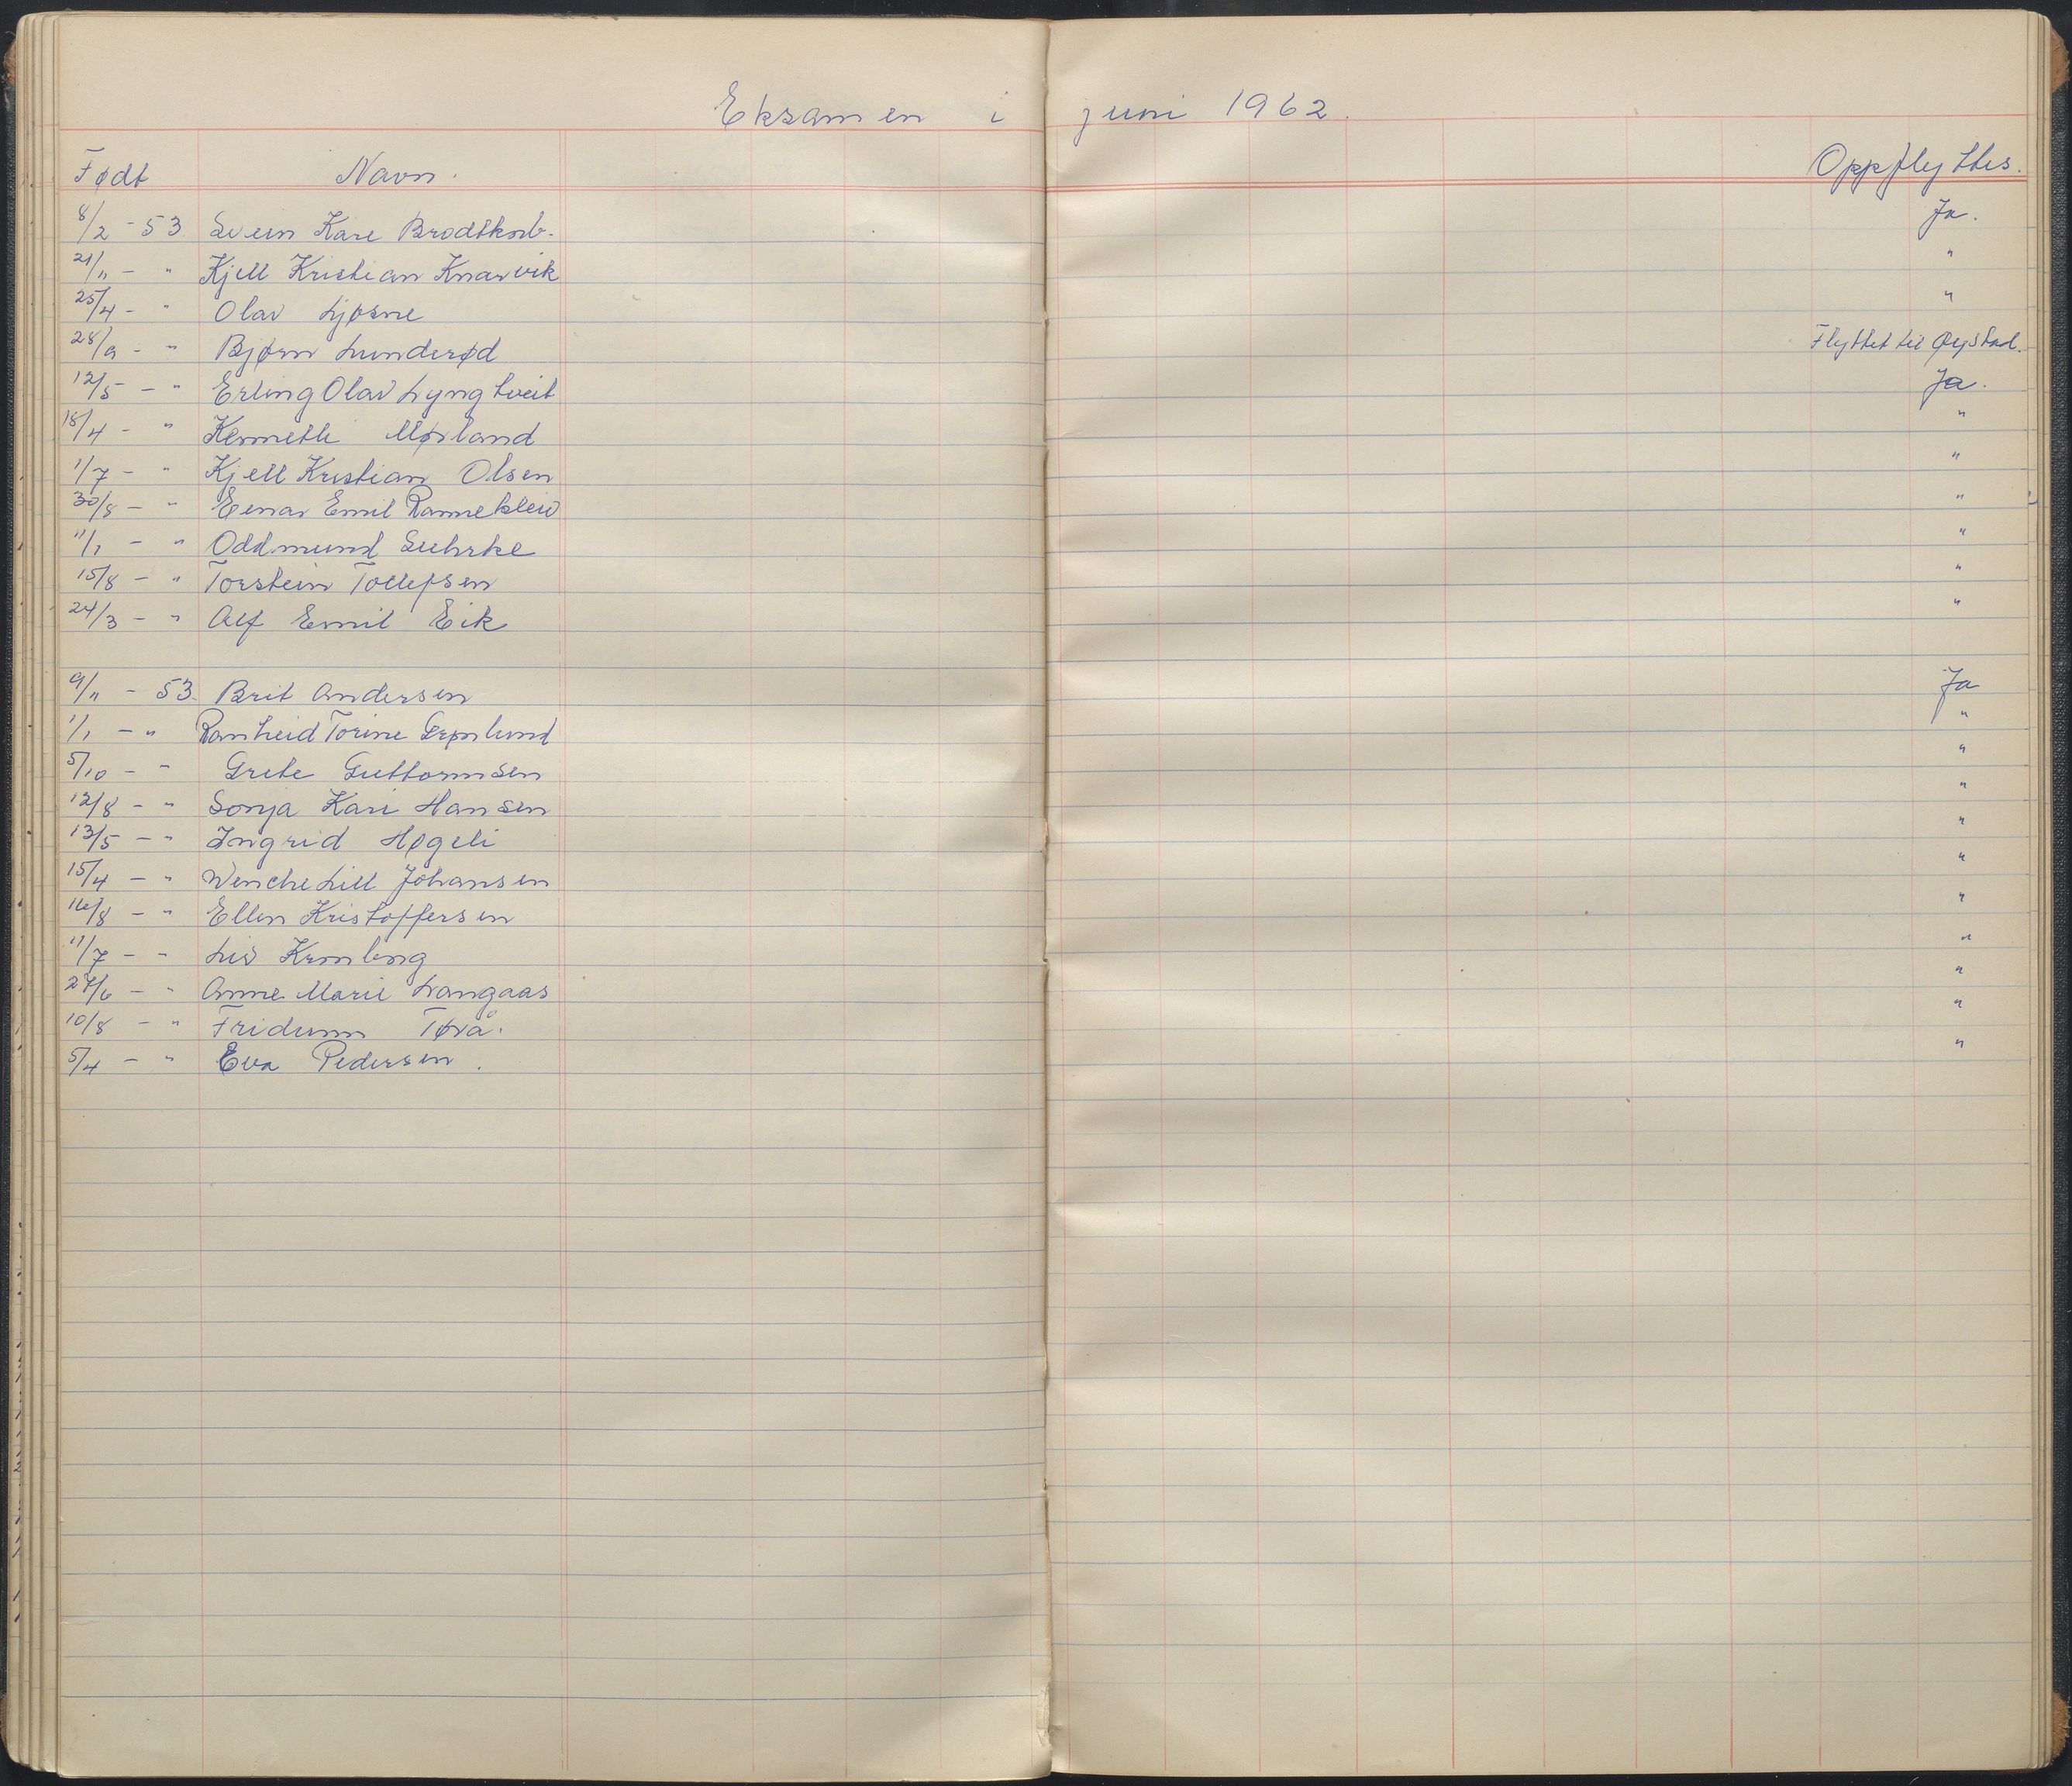 Eksamen i juni 1962.
Født Navn. Oppflyttes.
8/2 - 53. Svein Kare Brodtkorb. Ja.
21/11 - " Kjell Kristian Knarvik "
25/4 - " Olav Ljøsne "
28/9 - " Bjørn Lunderød Flyttet til Øystad.
12/5 - " Erling Olav Lyngtveit Ja.
18/4 - " Kenneth Mørland "
1/7 - " Kjell Kristian Olsen "
30/8 - " Einar Emil Rannekleiv "
11/1 - " Oddmund Suhrke "
15/8 - " Torstein Tollefsen "
24/3 - " Alf Emil Eik "
9/11 - 53. Brit Andersen Ja
1/1 - " Ranheid Torine Grønlund "
5/10 - " Grete Guttormsen "
12/8 - " Sonja Kari Hansen "
13/5 - " Ingrid Høgeli "
15/4 - " Wenche Lill Johansen "
16/8 - " Ellen Kristoffersen "
11/7 - " Liv "
27/6 - " Anne Marie Langaas "
10/8 - " Fridunn Tørå. "
5/4 - " Eva Pedersen. "